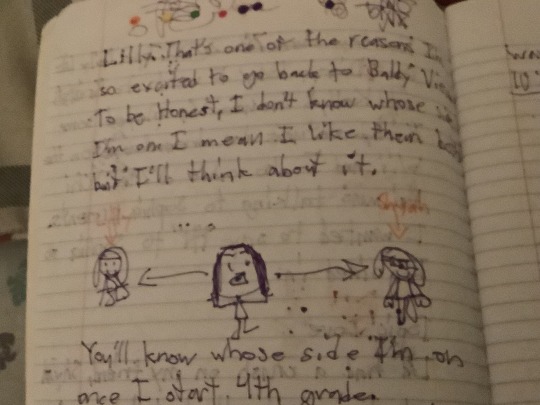 Lilly. That's one of the reasons I'm
so excited to go back to Baldy View
To be Honest, I don't know whose side
I'm on I mean I like them both
but I'll think about it.
...
You'll know whose side I'm on
once I start 4th grade.
10: